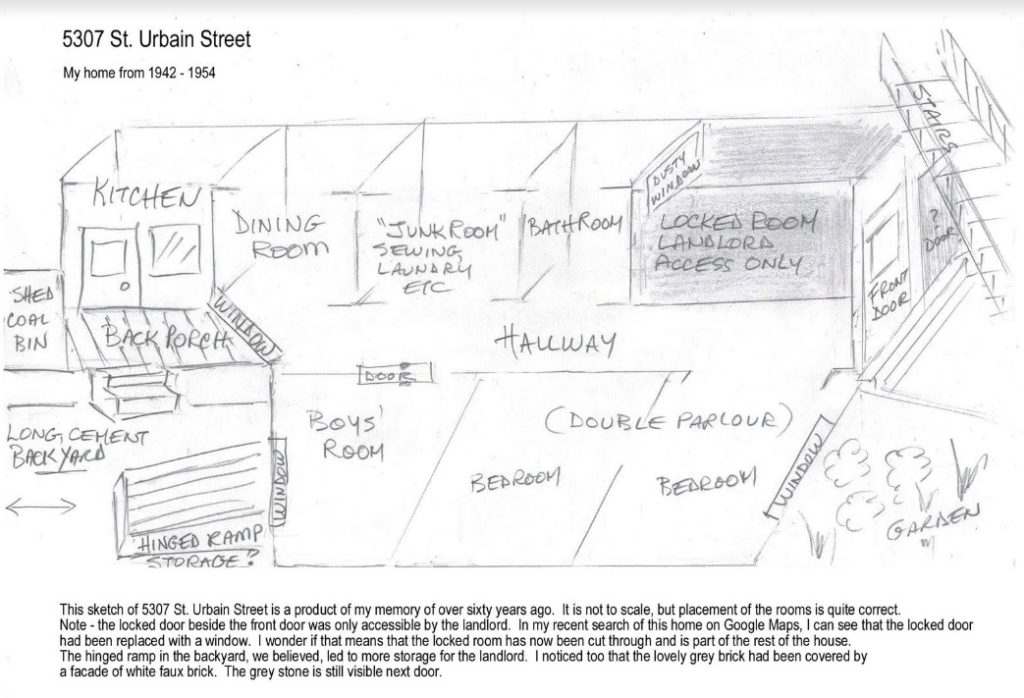 5307 St. Urbain Street
My home from 1942 - 1954
STAIRS
DUSTY
WINDOW
KITCHEN
DINING
ROOM
"JUNK ROOM"
SEWING,
LAUNDRY
ETC
BATHROOM
LOCKED ROOM
LANDLORD
ACCESS ONLY
?
DOOR
FRONT
DOOR
"SHED"
COAL
BIN
BACK PORCH
WINDOW
HALLWAY
DOOR
BOYS'
ROOM
(DOUBLE PARLOUR)
BEDROOM
BEDROOM
WINDOW
WINDOW
GARDEN
LONG, CEMENT
BACKYARD
HINGED RAMP
"STORAGE"?
This sketch of 5307 St. Urbain Street is a product of my memory of over sixty years ago. It is not to scale, but placement of the rooms is quite correct.
Note - the locked door beside the front door was only accessible by the landlord. In my recent search of this home on Google Maps, I can see that the locked door
had been replaced with a window. I wonder if that means that the locked room has now been cut through and is part of the rest of the house.
The hinged ramp in the backyard, we believed, led to more storage for the landlord. I noticed too that the lovely grey brick had been covered by
a facade of white faux brick. The grey stone is still visible next door.